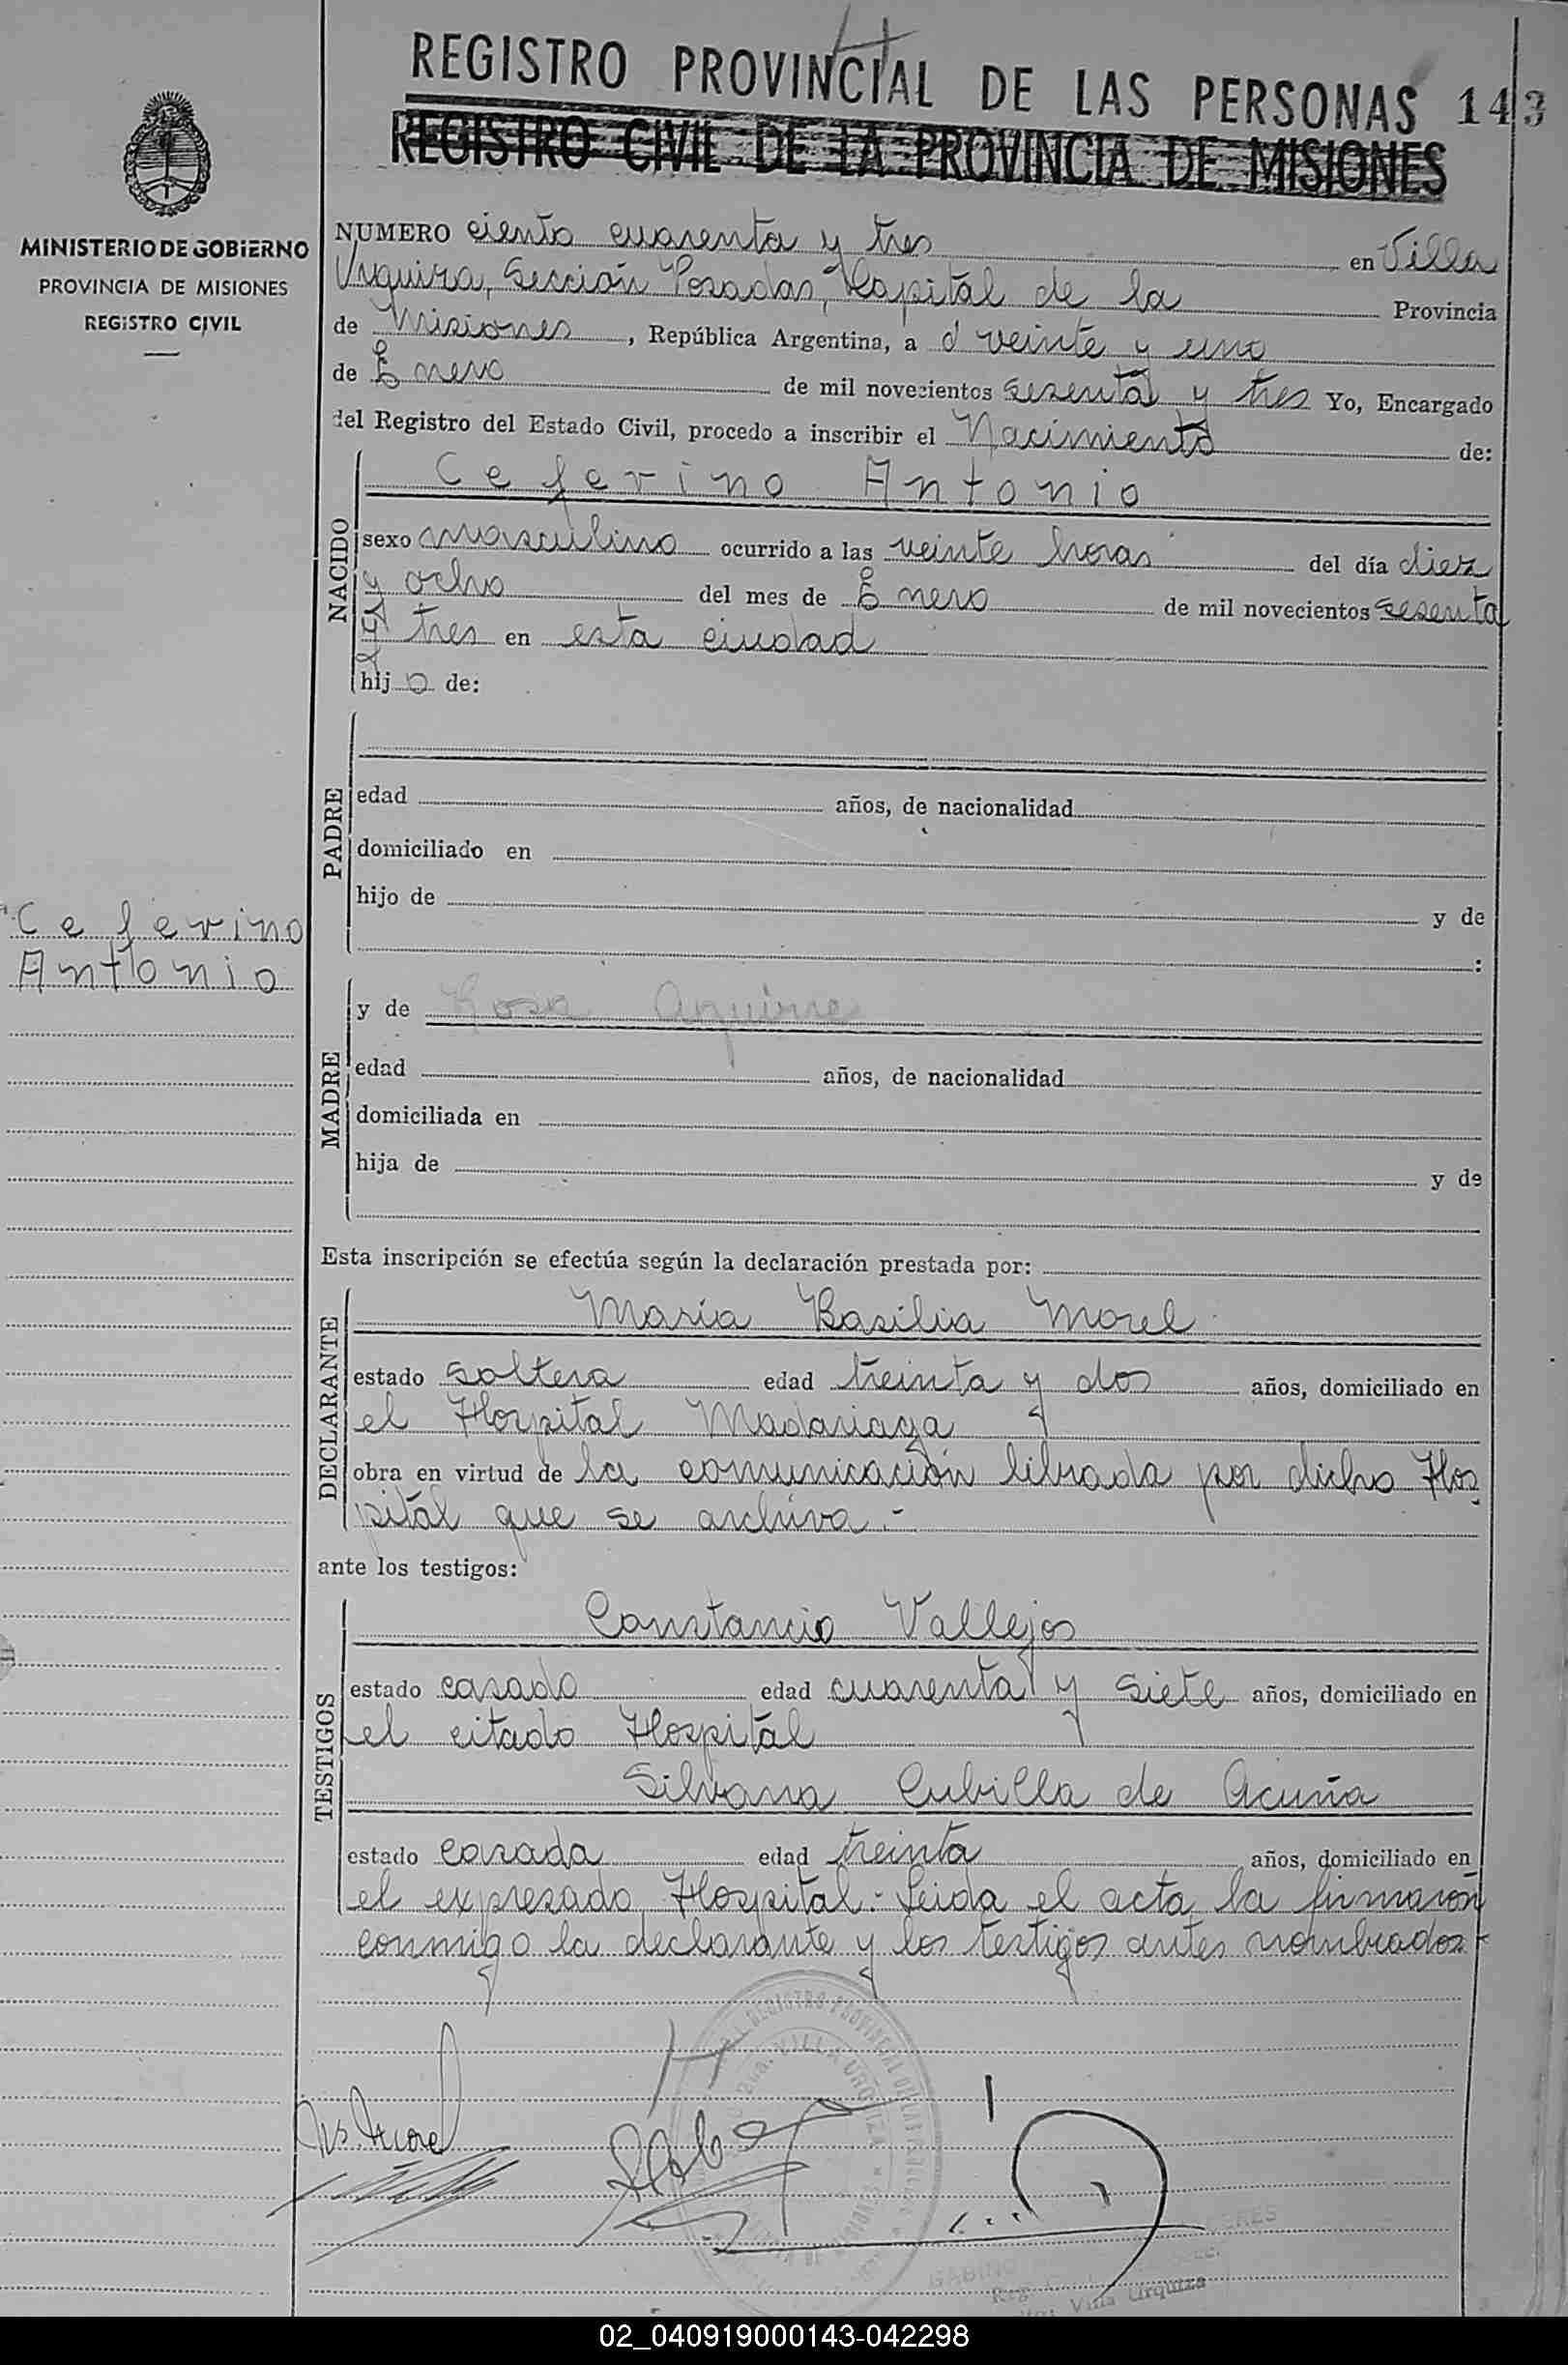 REGISTRO PROVINCIAL DE LAS PERSONAS 143
REGISTRO CIVIL DE LA PROVINCIA DE MISIONES
MINISTERIO DE GOBIERNO
PROVINCIA DE MISIONES
REGISTRO CIVIL
NUMERO ciento cuarenta y tres en Villa
Urquiza, Sección Posadas, Capital de la Provincia
de Misiones, República Argentina, a d veinte y uno
de Enero de mil novecientos sesenta y tres Yo, Encargado
del Registro del Estado Civil, procedo a inscribir el Nacimiento de:
Ceferino Antonio
NACIDO
sexo masculino ocurrido a las veinte horas del día diez
y ocho del mes de Enero de mil novecientos sesenta
y tres en esta ciudad
hijo de:
PADRE
edad años, de nacionalidad
domiciliado en
hijo de y de
:
Ceferino
Antonio
MADRE
y de Rosa Aquirre
edad años, de nacionalidad
domiciliada en
hija de y de
Esta inscripción se efectúa según la declaración prestada por:
DECLARANTE
María Basilia Morel
estado soltera edad treinta y dos años, domiciliado en
el Hospital Madariaga
obra en virtud de la comunicación librada por dicho Hos
pital que se archiva.-
ante los testigos:
TESTIGOS
Constancio Vallejos
estado casado edad cuarenta y siete años, domiciliado en
el citado Hospital
Silvana Cubilla de Acuña
estado casada edad treinta años, domiciliado en
el expresado Hospital.- Leida el acta la firmaron
conmigo la declarante y los testigos antes nombrados-
REGISTRO PROVINCIAL DE LAS
VILLA URQUIZA
MISIONES
GABINO
Villa Urquiza
02_040919000143-042298